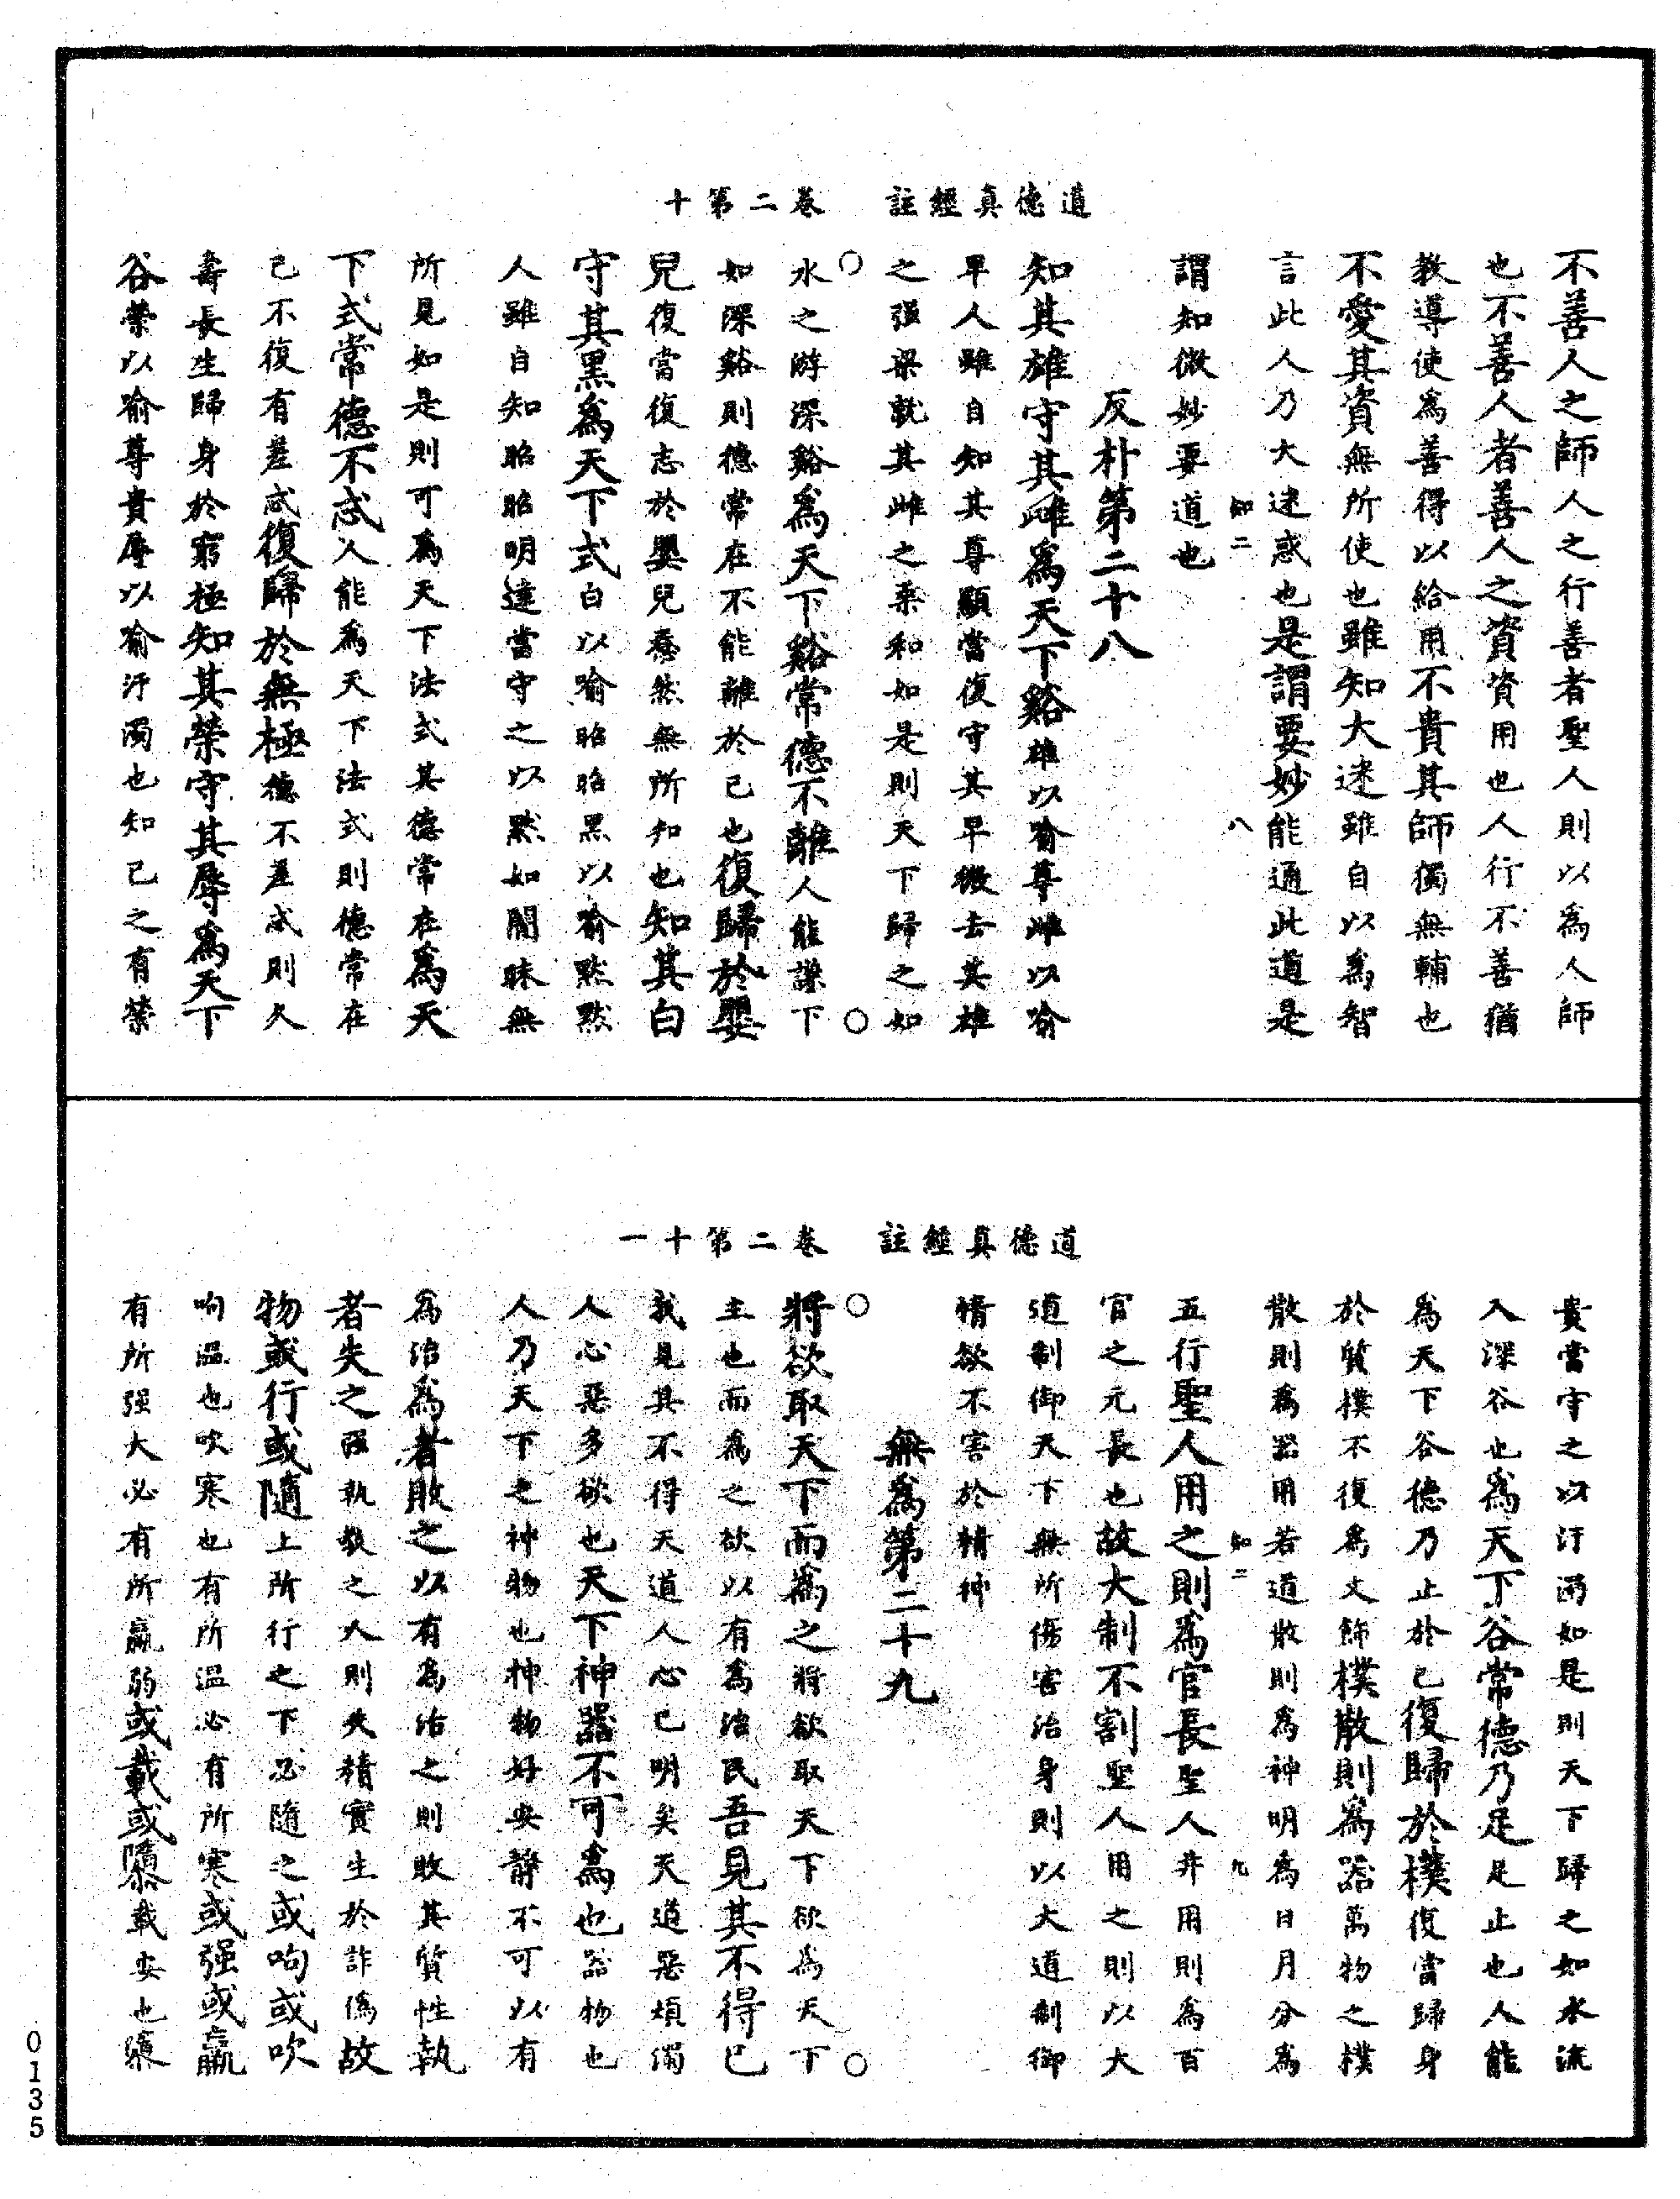 道德真經註　卷二第十
不善人之師人之行善者聖人則以為人師
也不善人者善人之資資用也人行不善猶
教導使為善得以給用不貴其師獨無輔也
不愛其資無所使也雖知大迷雖自以為智
言此人乃大迷惑也是謂要妙能通此道是
知二　八
謂知微妙要道也
反朴第二十八
知其雄守其雌為天下谿雄以喻尊雌以喻
卑人雖自知其尊顯當復守其卑微去其雄
之强梁就其雌之柔和如是則天下歸之如
水之游深谿為天下谿常德不離人能謙下
如深谿則德常在不能離於己也復歸於嬰
兒復當復志於嬰兒憃然無所知也知其白
守其黑為天下式白以喻昭昭黑以喻默默
人雖自知昭昭明達當守之以默如闇昧無
所見如是則可為天下法式其德常在為天
下式常德不忒人能為天下法式則德常在
己不復有差忒復歸於無極德不差忒則久
壽長生歸身於窮極知其榮守其辱為天下
谷榮以喻尊貴辱以喻汙濁也知己之有榮
道德真經註　卷二第十一
貴當守之以汙濁如是則天下歸之如水流
入深谷也為天下谷常德乃足足止也人能
為天下谷德乃止於己復歸於樸復當歸身
於質樸不復為文飾樸散則為器萬物之樸
散則為器用若道散則為神明為日月分為
知二　九
五行聖人用之則為官長聖人井用則為百
官之元長也故大制不割聖人用之則以大
道制御天下無所傷害治身則以大道制御
情欲不害於精神
無為第二十九
將欲取天下而為之將欲取天下欲為天下
主也而為之欲以有為治民吾見其不得已
我見其不得天道人心已明矣天道惡煩濁
人心惡多欲也天下神器不可為也器物也
人乃天下之神物也神物好安靜不可以有
為治為者敗之以有為治之則敗其質性執
者失之强執教之人則失精實生於詐偽故
物或行或隨上所行之下必隨之或呴或吹
呴溫也吹寒也有所溫必有所寒或强或羸
有所强大必有所羸弱或載或隳載安也隳
0135